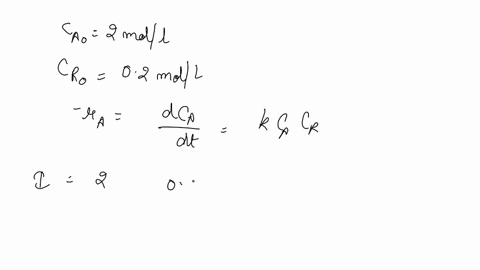 C_{A_0} = 2 mol/l
C_{R_0} = 0.2 mol/L
-r_A = \frac{dC_A}{dt} = k C_A C_R
I = 2 0..